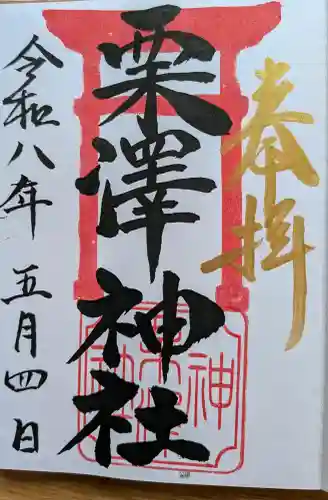 奉拝
栗澤神社
令和八年五月四日